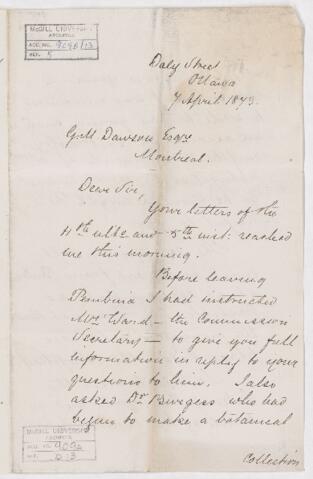 McGILL UNIVERSITY
ARCHIVES
ACC. NO. 909B/13
REF. 5
Daly Street
Ottawa
7 April 1873.
G.M. Dawson Esqre
Montreal.
Dear Sir,
Your letters of the
ulto and 5th inst: reached
me this morning.
Before leaving
Pembina I had instructed
Mr Ward – the Commission
Secretary – to give you full
information in reply to your
questions to him. I also
asked Dr Burgess who had
begun to make a botanical
Collection
McGILL UNIVERSITY
ARCHIVES
ACC. NO.
REF.